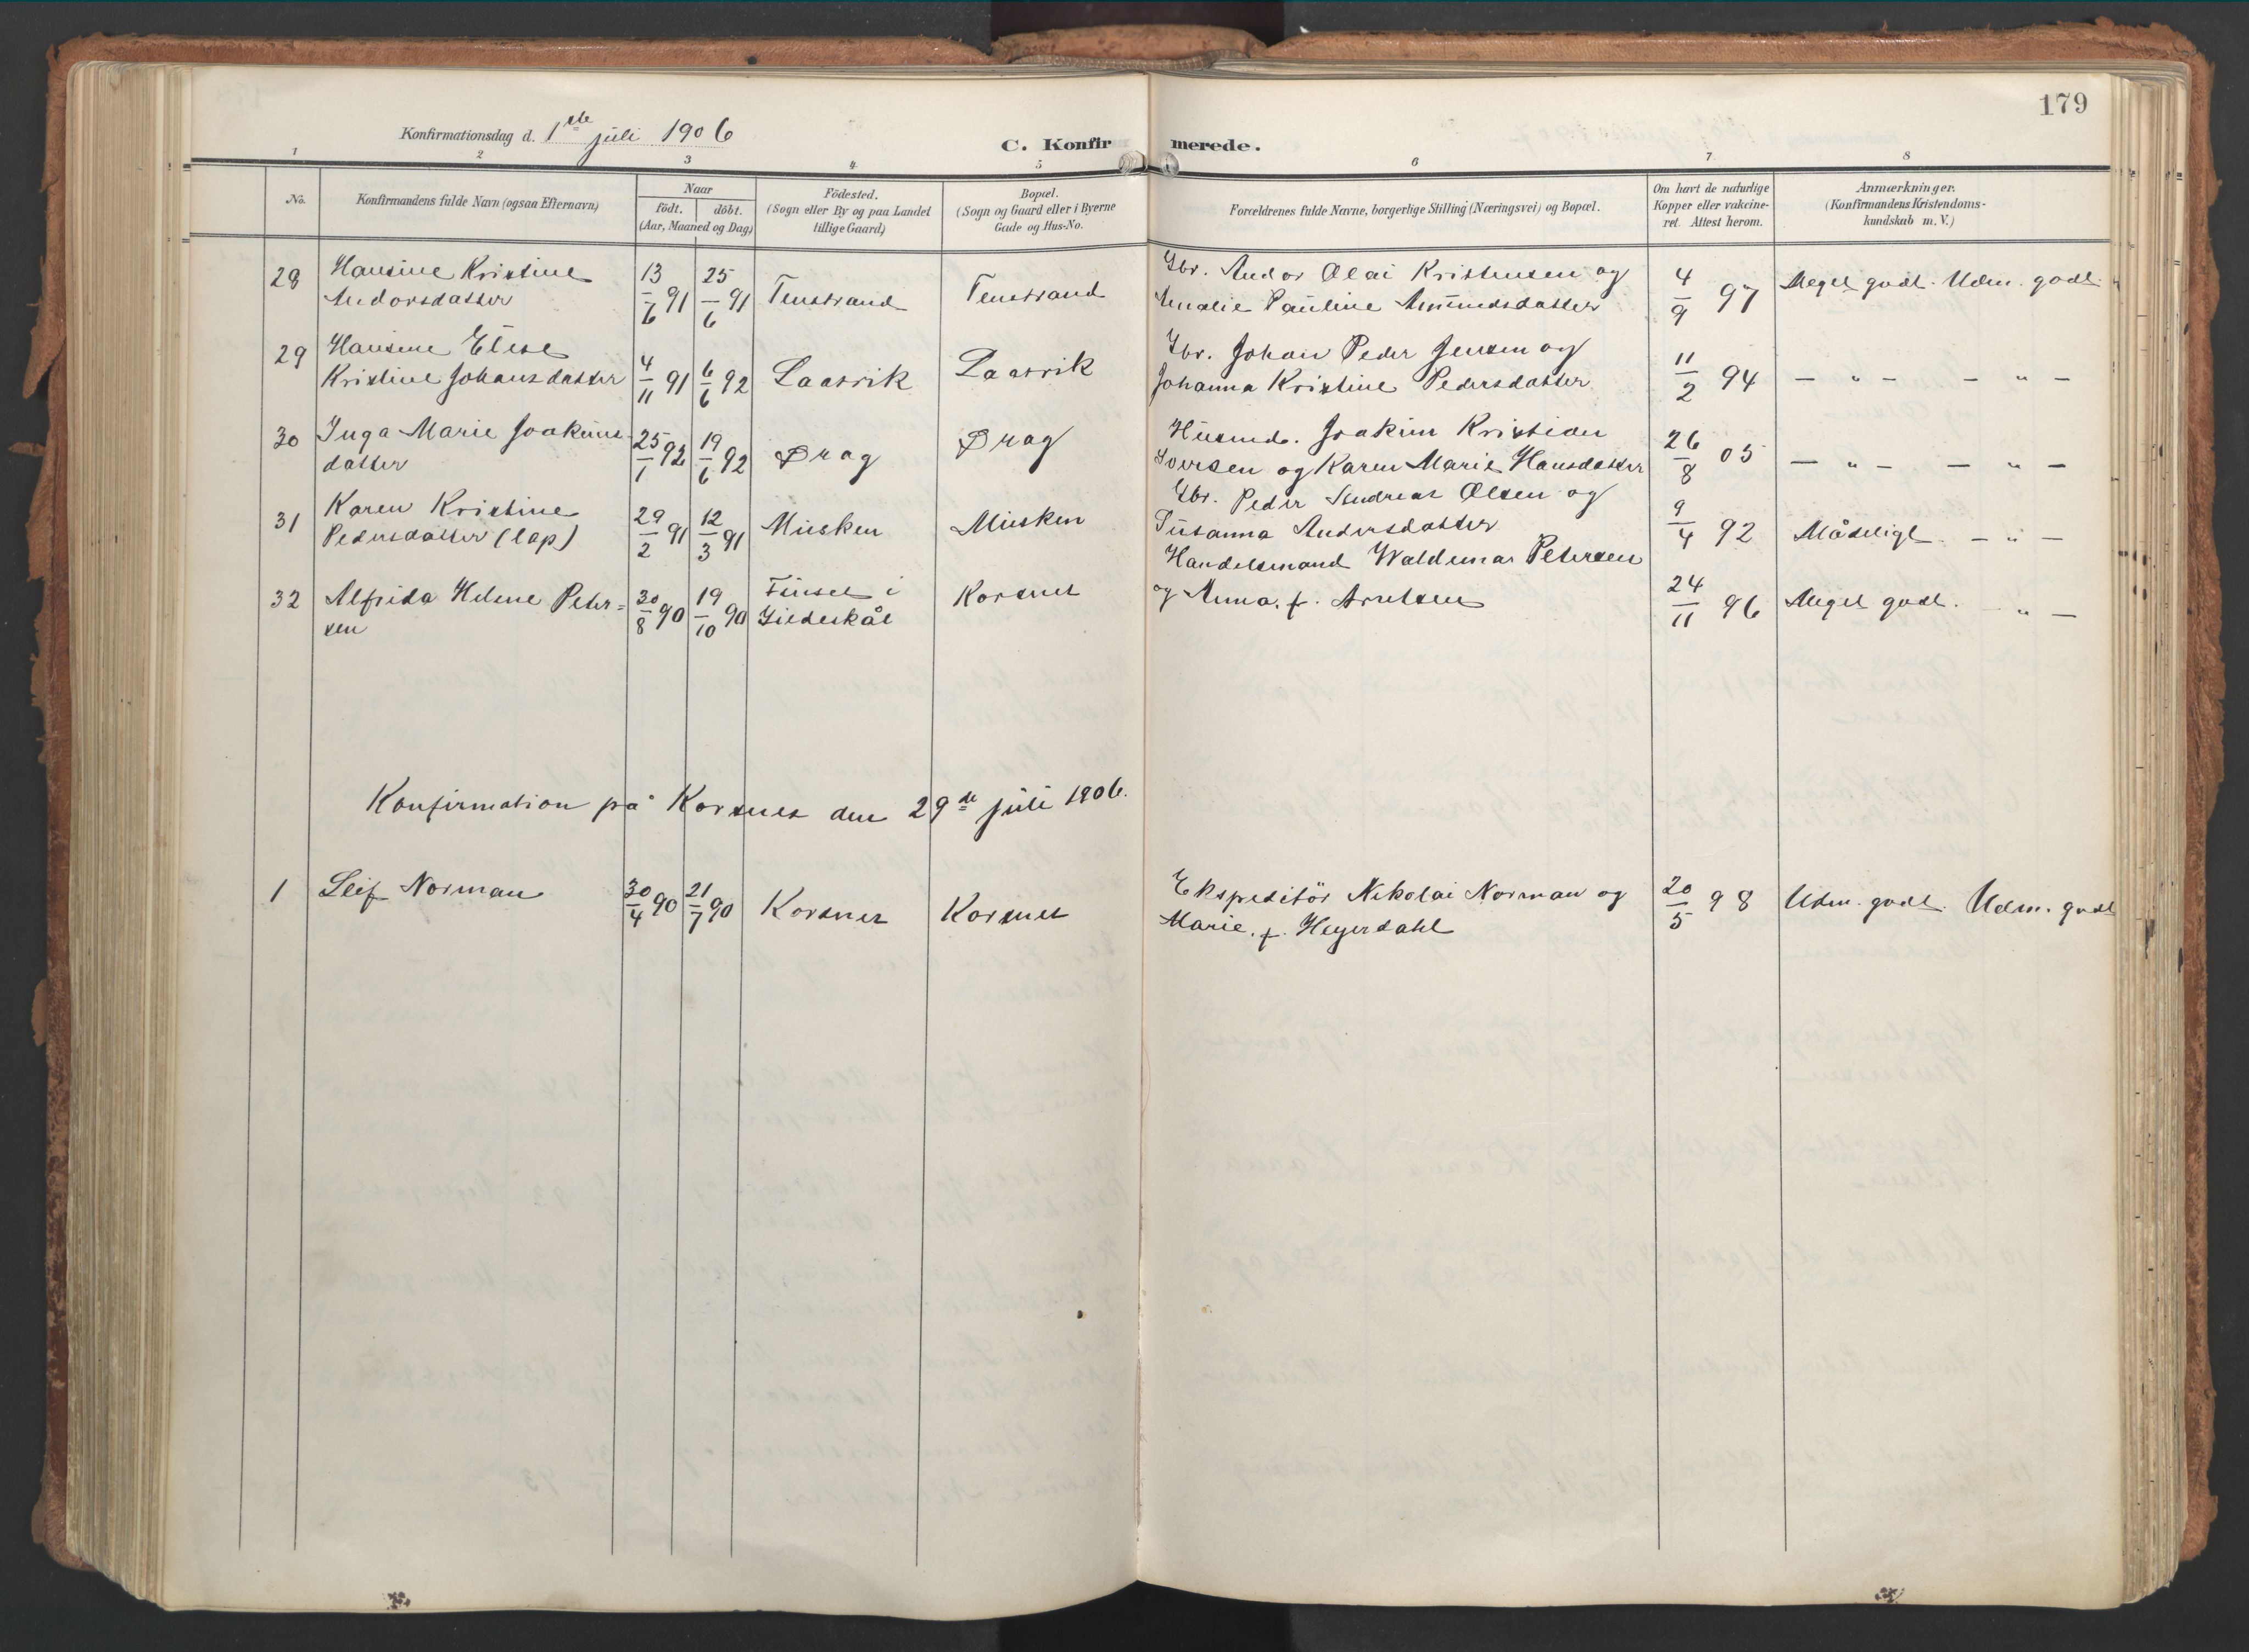 179
Konfirmationsdag d. 1ste juli 1906
C. Konfirmerede.
1 2 3 4 5 6 7 8
No.
Konfirmandens fulde Navn (ogsaa Efternavn)
Naar
födt. döbt.
(Aar, Maaned og Dag)
Födested.
(Sogn eller By og paa Landet
tillige Gaard)
Bopæl.
(Sogn og Gaard eller i Byerne
Gade og Hus-No.
Forældrenes fulde Navne, borgerlige Stilling (Næringsvei) og Bopæl.
Om havt de naturlige
Kopper eller vakcine-
ret. Attest herom.
Anmærkninger.
(Konfirmandens Kristendoms-
kundskab m. V.)
28 Hansine Kristine 13/6 91 25/6 91 Tenstrand Tenstrand Gbr. Andor Olai Kristensen og 4/9 97 Meget godt. Udm. godt.
Andorsdatter Amalie Pauline Amundsdatter
29 Hansine Elise 4/11 91 6/6 92 Laasvik Laasvik Gbr. Johan Peder Jensen og 11/2 94 — " — — " —
Kristine Johansdatter Johanna Kristine Pedersdatter
30 Inga Marie Joakims- 25/1 92 19/6 92 Drag Drag Husmd. Joakim Kristian 26/8 05 — " — — " —
datter Iversen og Karen Marie Hansdatter
31 Karen Kristine 29/2 91 12/3 91 Musken Musken Gbr. Peder Andreas Olsen og 9/4 92 Mådeligt. — " —
Pedersdatter (lap) Susanna Andersdatter
32 Alfrida Helene Peter= 30/8 90 19/10 90 Finset i Korsnes Handelsmand Waldemar Petersen 24/11 96 Meget godt. " —
sen Gildeskål og Anna, f. Arntsen
Konfirmation på Korsnes den 29de juli 1906.
1 Leif Norman 30/4 90 21/7 90 Korsnes Korsnes Ekspeditör Nikolai Norman og 20/5 98 Udm. godt. Udm. godt
Marie, f. Heyerdahl